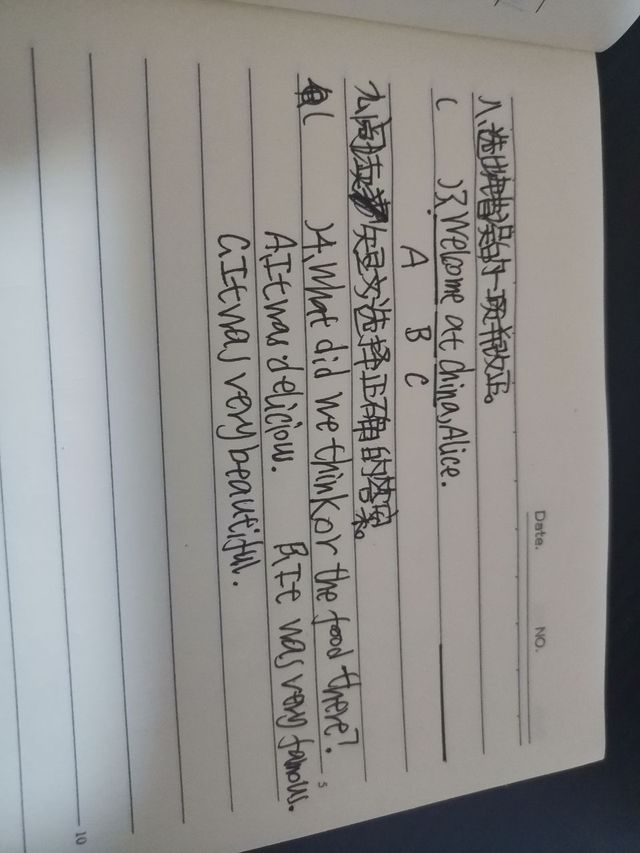 Date. NO.
八、选出错误的一项并改正。
( )3. Welcome at China, Alice.
A B C
九、阅读短文选择正确的答案。
( )4. What did we think or the food there?
A. It was delicious. B. It was very famous.
C. It was very beautiful.
5
10